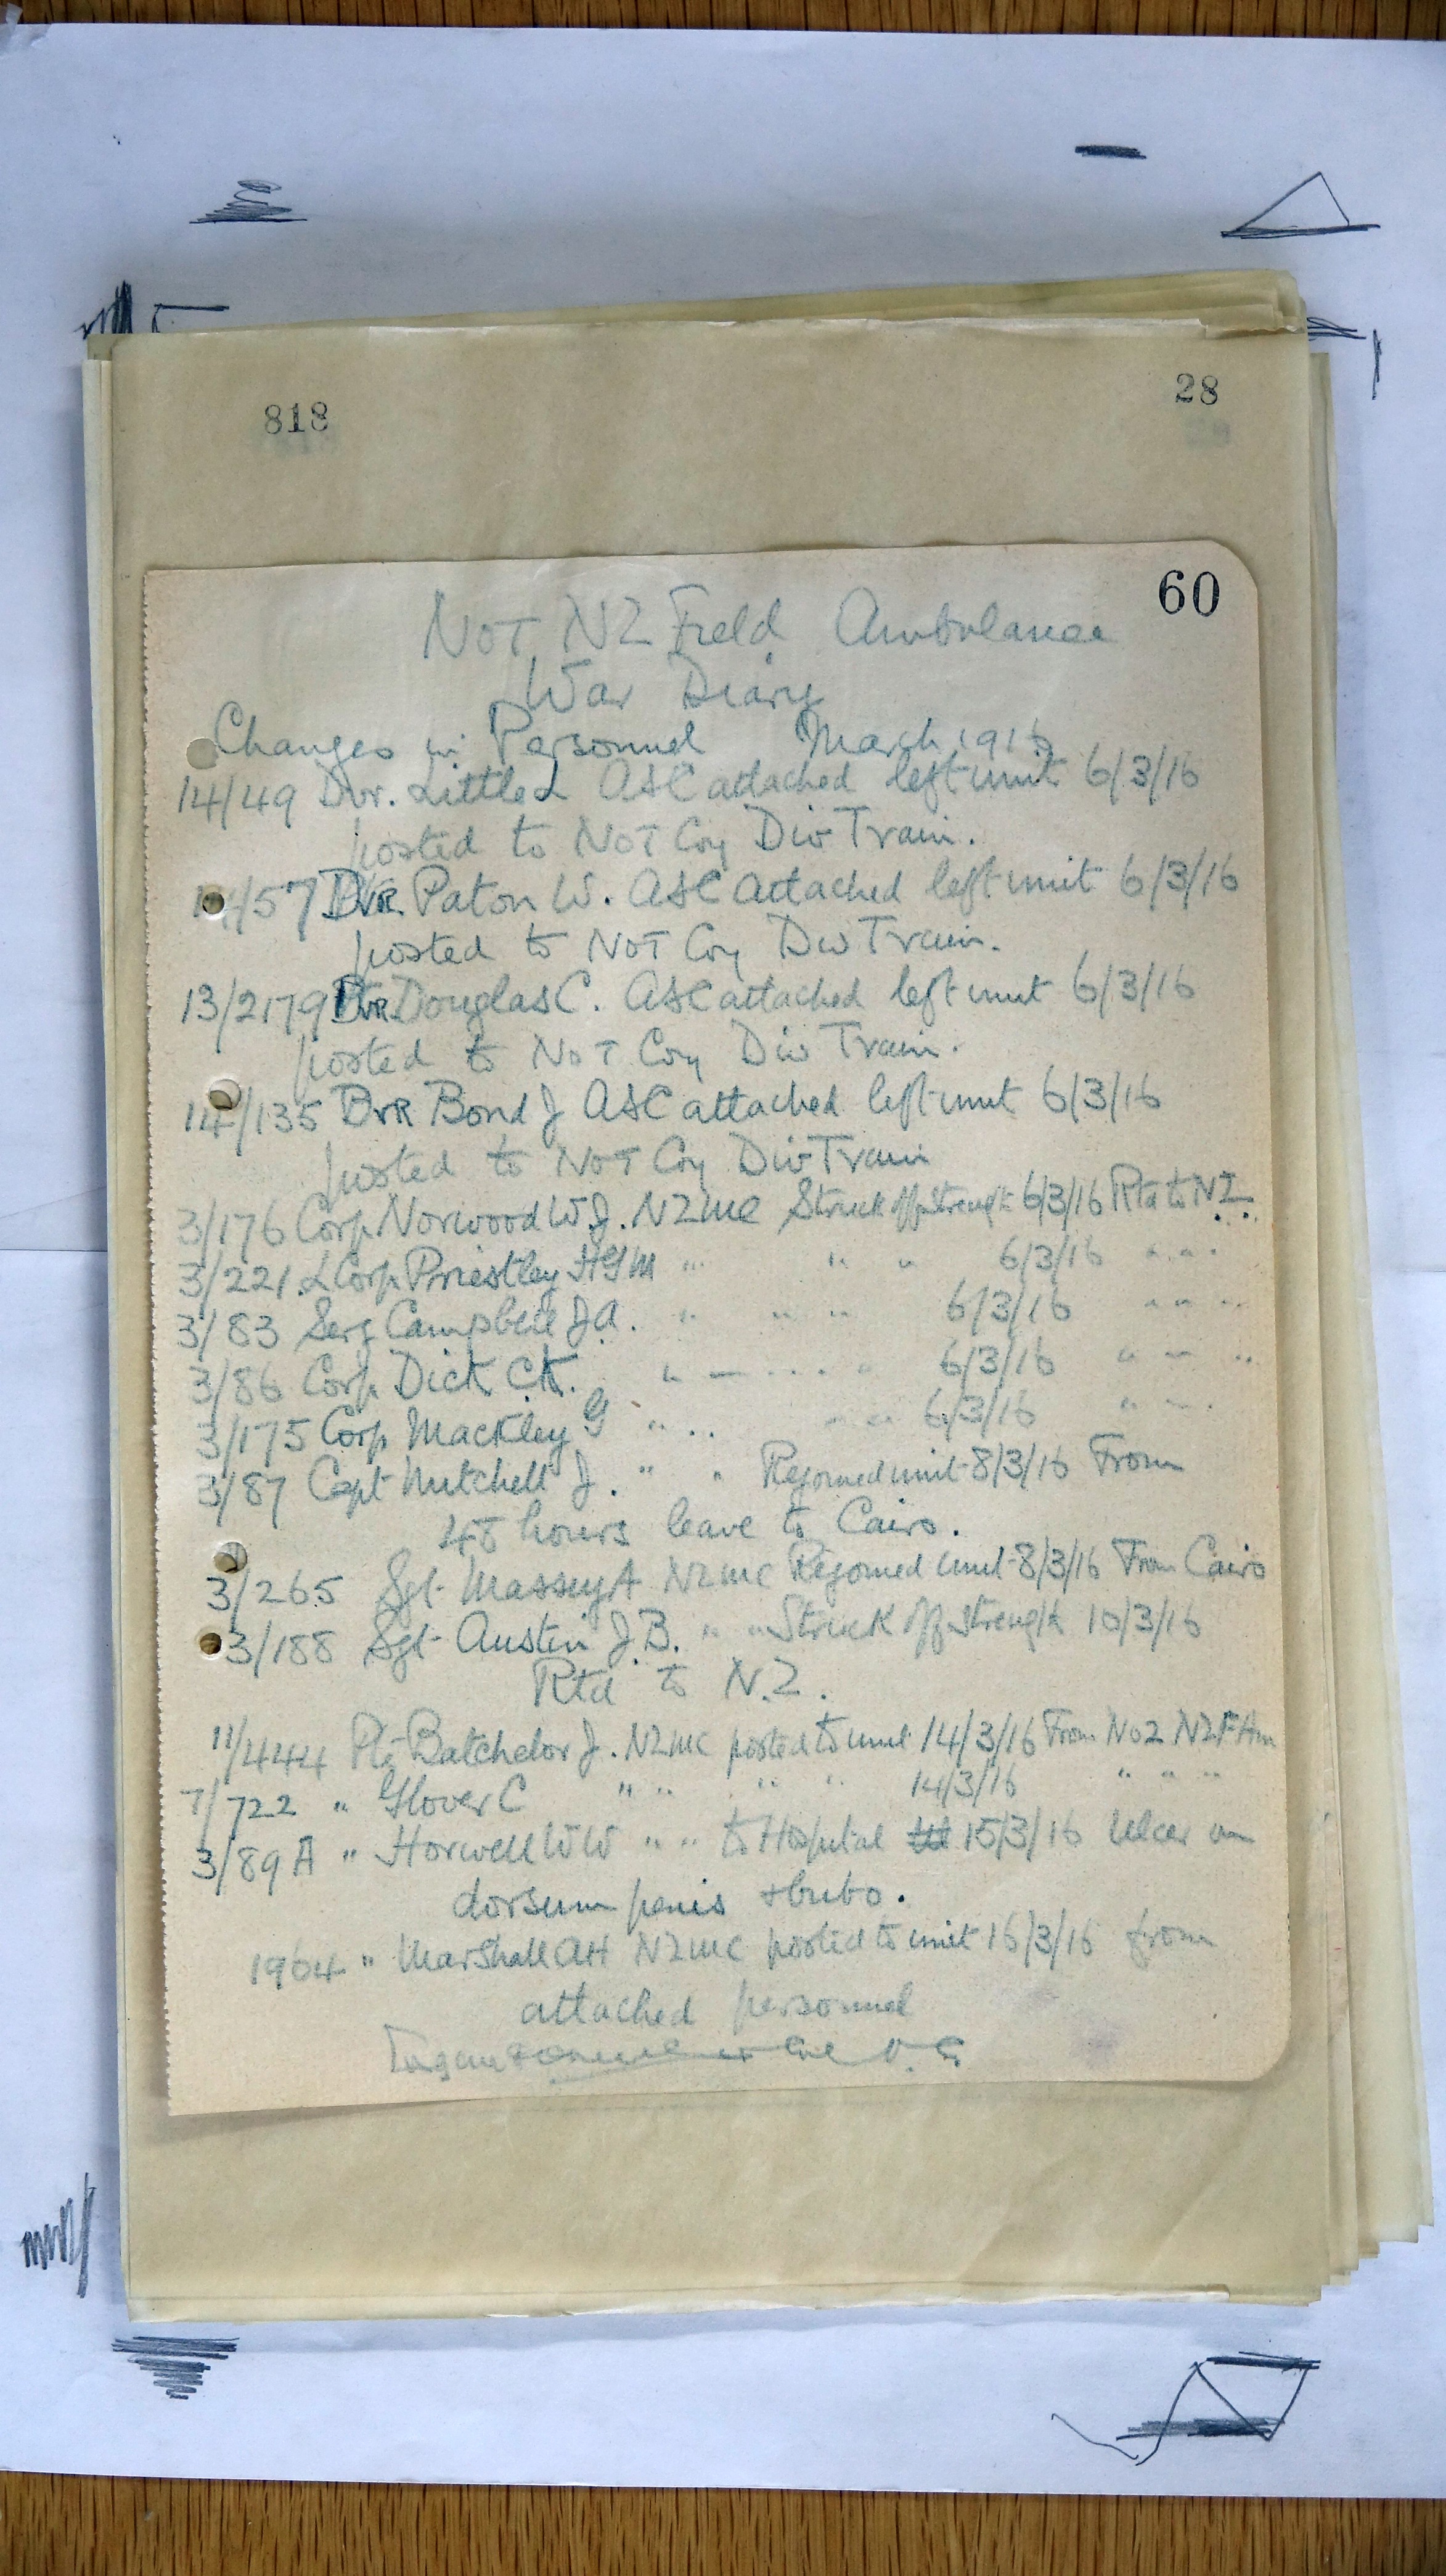 818
28
60
No 1 NZ Field Ambulance
War Diary
Changes in Personnel March 1916
14/49 Dvr. Little L ASC attached left unit 6/3/16
posted to No 1 Coy Div Train.
14/57 DVR. Paton W. ASC attached left unit 6/3/16
posted to No 1 Coy Div Train.
13/2179 DVR. Douglas C. ASC attached left unit 6/3/16
posted to No 1 Coy Div Train.
14/135 DVR Bond J ASC attached left unit 6/3/16
posted to No 1 Coy Div Train
3/176 Corp Norwood W.J. NZMC Struck off Strength 6/3/16 Rtd to NZ.
3/221. L Corp Priestley HGM " " " 6/3/16 " " "
3/83 Serg Campbell J.A. " " " 6/3/16 " " "
3/86 Corp Dick C.K. " " " 6/3/16 " " "
3/175 Corp Mackley G " " " " 6/3/16 " " "
3/87 Capt Mitchell J. " " Rejoined unit 8/3/16 From
48 hours leave to Cairo.
3/265 Sgt Massey A NZMC Rejoined unit 8/3/16 From Cairo
3/188 Sgt Austin J.B. " " Struck off Strength 10/3/16
Rtd to N.Z.
11/444 Pte Batchelor J. NZMC posted to unit 14/3/16 From No 2 NZFAm
7/722 " Glover C " " " " 14/3/16 " " "
3/89A " Horwell WW " " to Hospital 15/3/16 Ulcer on
dorsum penis + bubo.
1964 " Marshall AH NZMC posted to unit 16/3/16 from
attached personnel